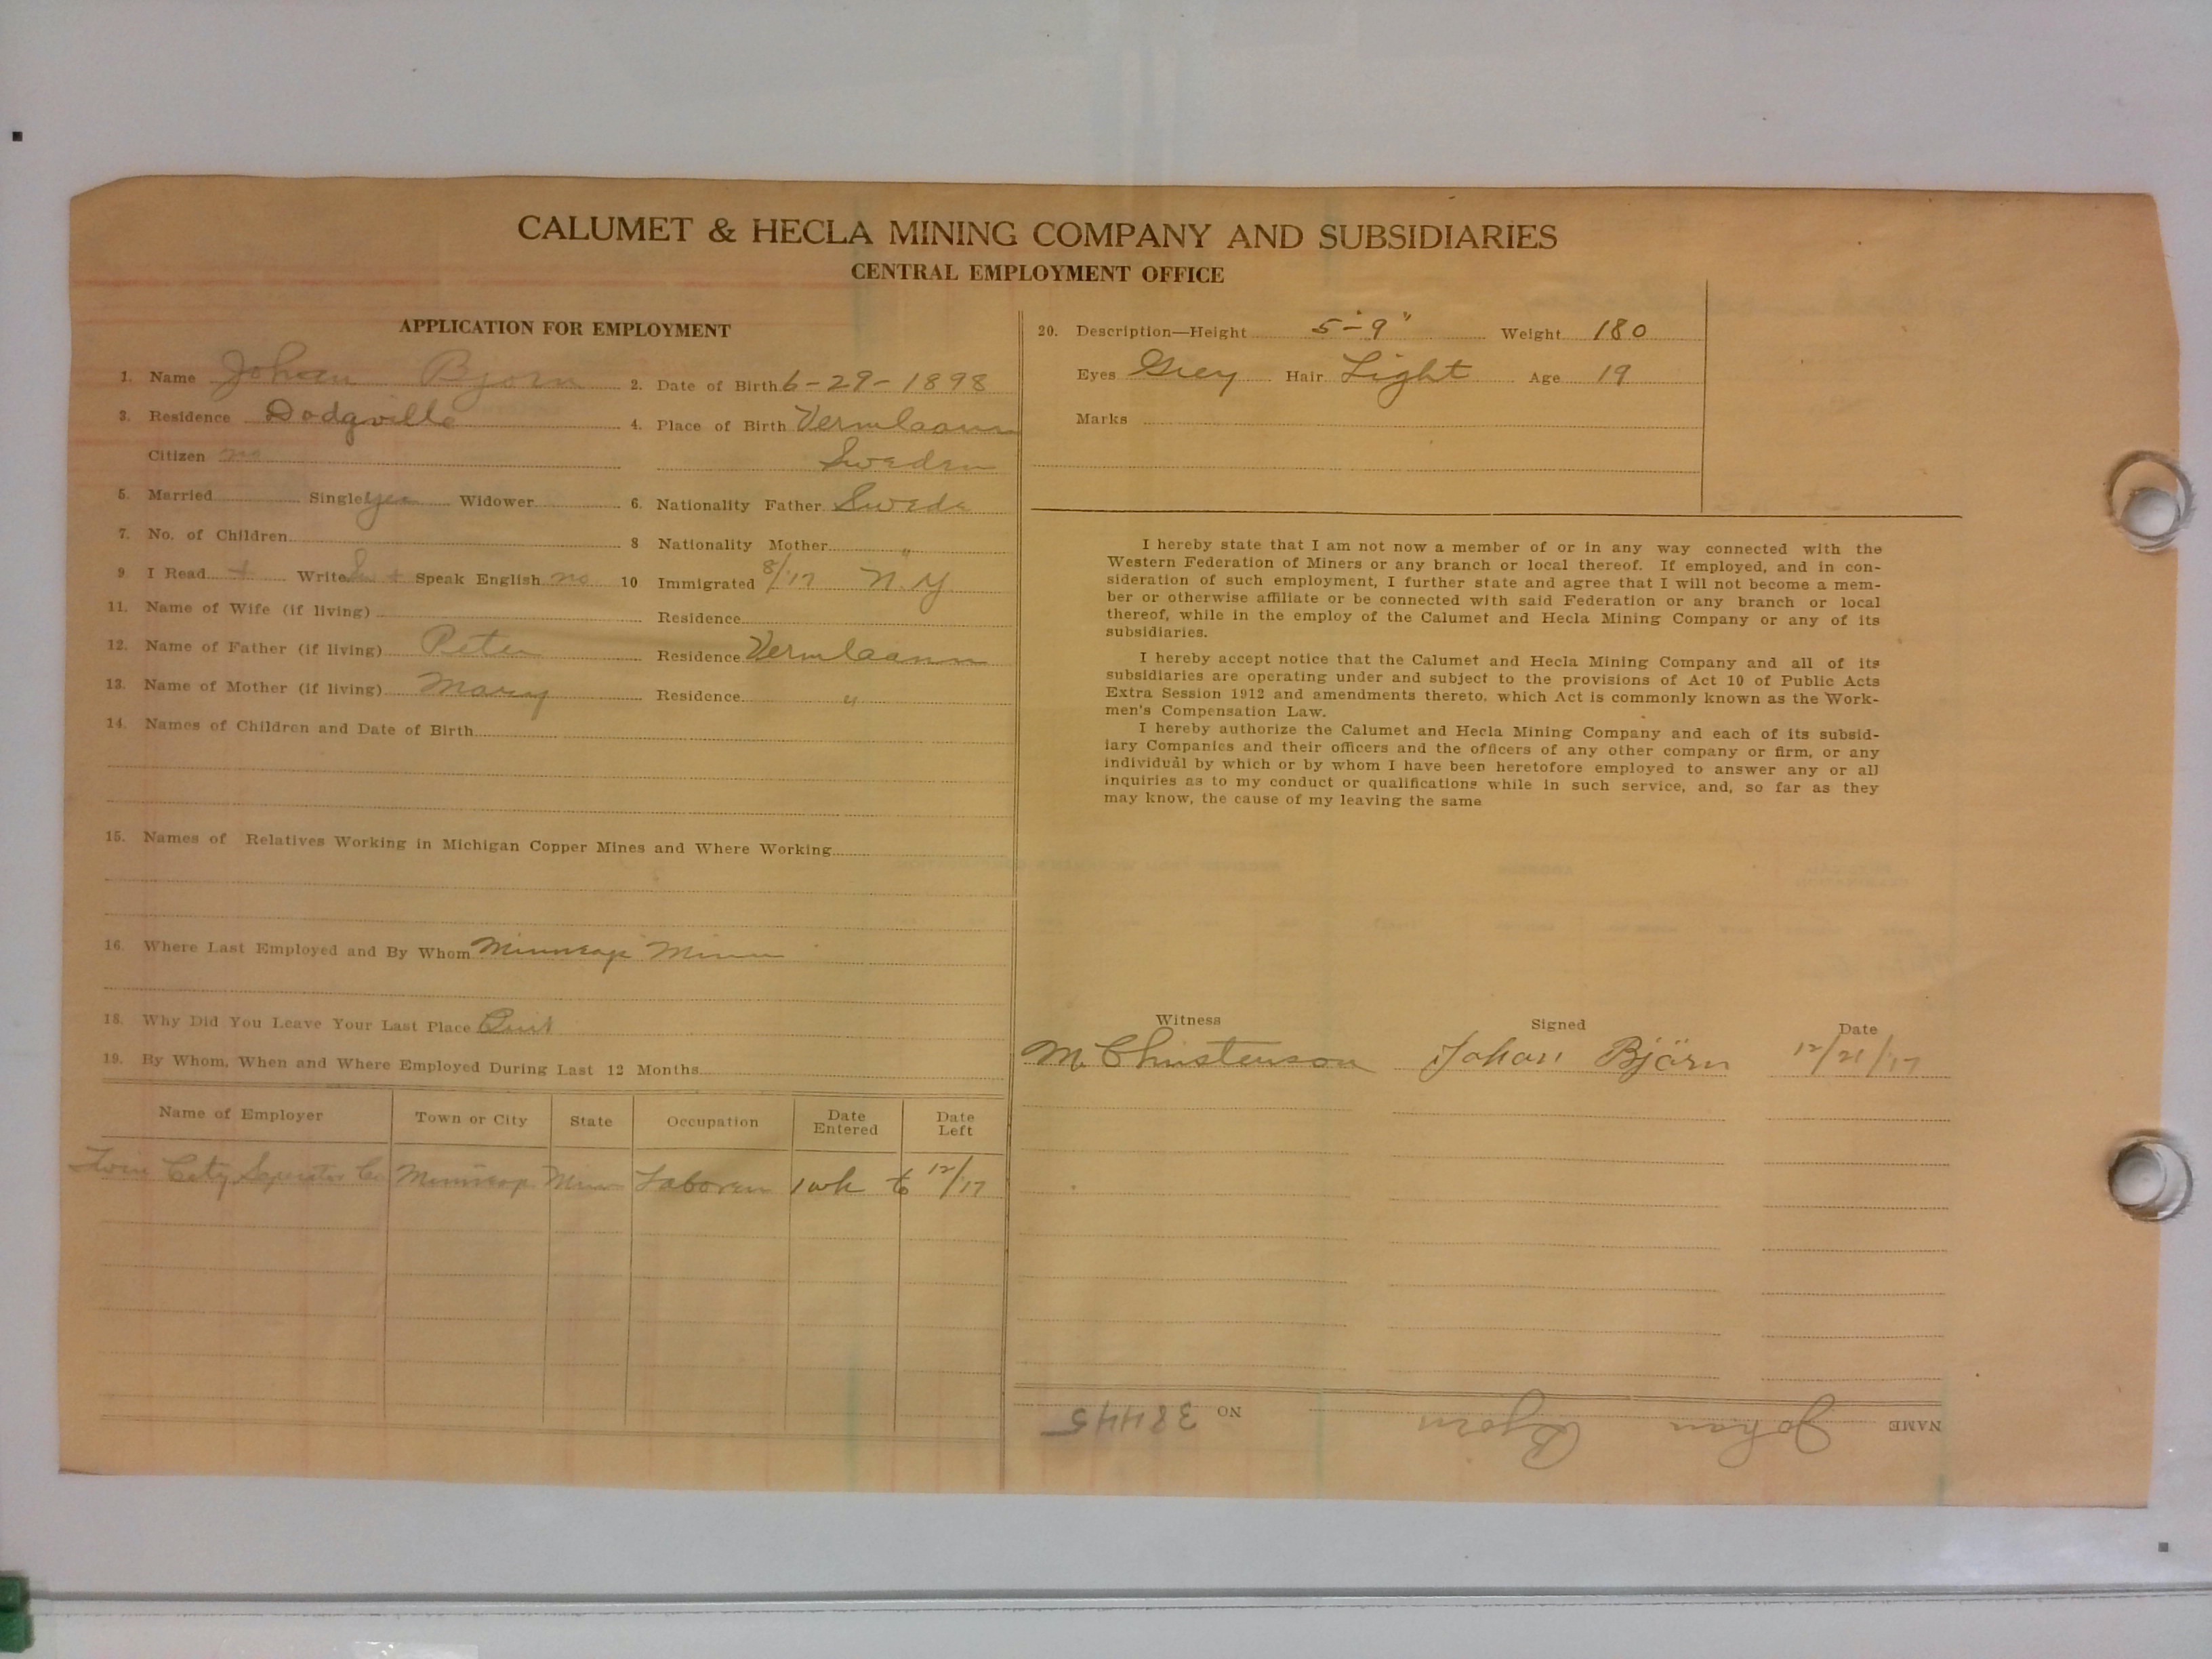 CALUMET & HECLA MINING COMPANY AND SUBSIDIARIES
CENTRAL EMPLOYMENT OFFICE
APPLICATION FOR EMPLOYMENT
1. Name Johan Bjorn 2. Date of Birth 6-29-1898
3. Residence Dodgville 4. Place of Birth Vermlaann
Citizen no Sweden
5. Married Single yes Widower 6. Nationality Father Swede
7. No. of Children 8 Nationality Mother "
9. I Read + Write + Speak English no 10 Immigrated 8/17 N.Y.
11. Name of Wife (if living) Residence
12. Name of Father (if living) Peter Residence Vermlaann
13. Name of Mother (if living) Mary Residence "
14. Names of Children and Date of Birth
15. Names of Relatives Working in Michigan Copper Mines and Where Working
16. Where Last Employed and By Whom Minneap Minn
18. Why Did You Leave Your Last Place Quit
19. By Whom, When and Where Employed During Last 12 Months
Name of Employer Town or City State Occupation Date Entered Date Left
Twin City Seperator Co Minneap Minn Laborer 1 wk to 12/17
20. Description—Height 5'-9" Weight 180
Eyes Grey Hair Light Age 19
Marks
I hereby state that I am not now a member of or in any way connected with the
Western Federation of Miners or any branch or local thereof. If employed, and in con-
sideration of such employment, I further state and agree that I will not become a mem-
ber or otherwise affiliate or be connected with said Federation or any branch or local
thereof, while in the employ of the Calumet and Hecla Mining Company or any of its
subsidiaries.
I hereby accept notice that the Calumet and Hecla Mining Company and all of its
subsidiaries are operating under and subject to the provisions of Act 10 of Public Acts
Extra Session 1912 and amendments thereto, which Act is commonly known as the Work-
men's Compensation Law.
I hereby authorize the Calumet and Hecla Mining Company and each of its subsid-
iary Companies and their officers and the officers of any other company or firm, or any
individual by which or by whom I have been heretofore employed to answer any or all
inquiries as to my conduct or qualifications while in such service, and, so far as they
may know, the cause of my leaving the same
Witness Signed Date
M. Christenson Johan Björn 12/21/17
NAME Johan Bjorn NO 38445